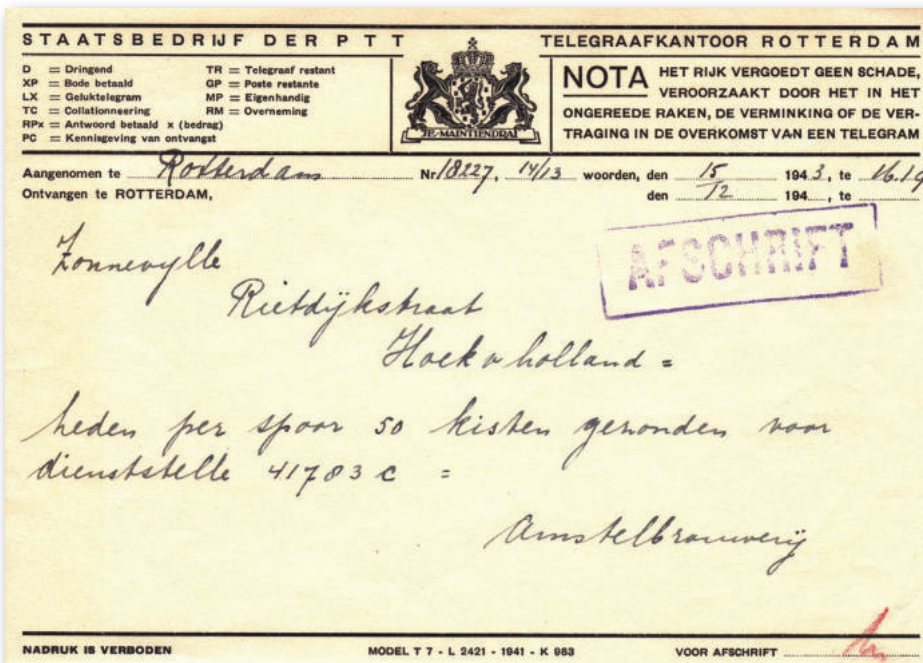 STAATSBEDRIJF DER PTT
TELEGRAAFKANTOOR ROTTERDAM
D = Dringend
XP = Bode betaald
LX = Geluktelegram
TC = Collationneering
RPx = Antwoord betaald x (bedrag)
PC = Kennisgeving van ontvangst
TR = Telegraaf restant
GP = Poste restante
MP = Eigenhandig
RM = Overneming
JE MAINTIENDRAI
NOTA HET RIJK VERGOEDT GEEN SCHADE,
VEROORZAAKT DOOR HET IN HET
ONGEREEDE RAKEN, DE VERMINKING OF DE VER-
TRAGING IN DE OVERKOMST VAN EEN TELEGRAM
Aangenomen te Rotterdam Nr 18227, 14/13 woorden, den 15 1943, te 16.19
Ontvangen te ROTTERDAM, den 12 194 , te
AFSCHRIFT
Zonnevylle
Rietdijkstraat
Hoek v holland =
heden per spoor 50 kisten gezonden voor
dienststelle 41783 c =
Amstelbrouwerij
NADRUK IS VERBODEN
MODEL T 7 - L 2421 - 1941 - K 983
VOOR AFSCHRIFT